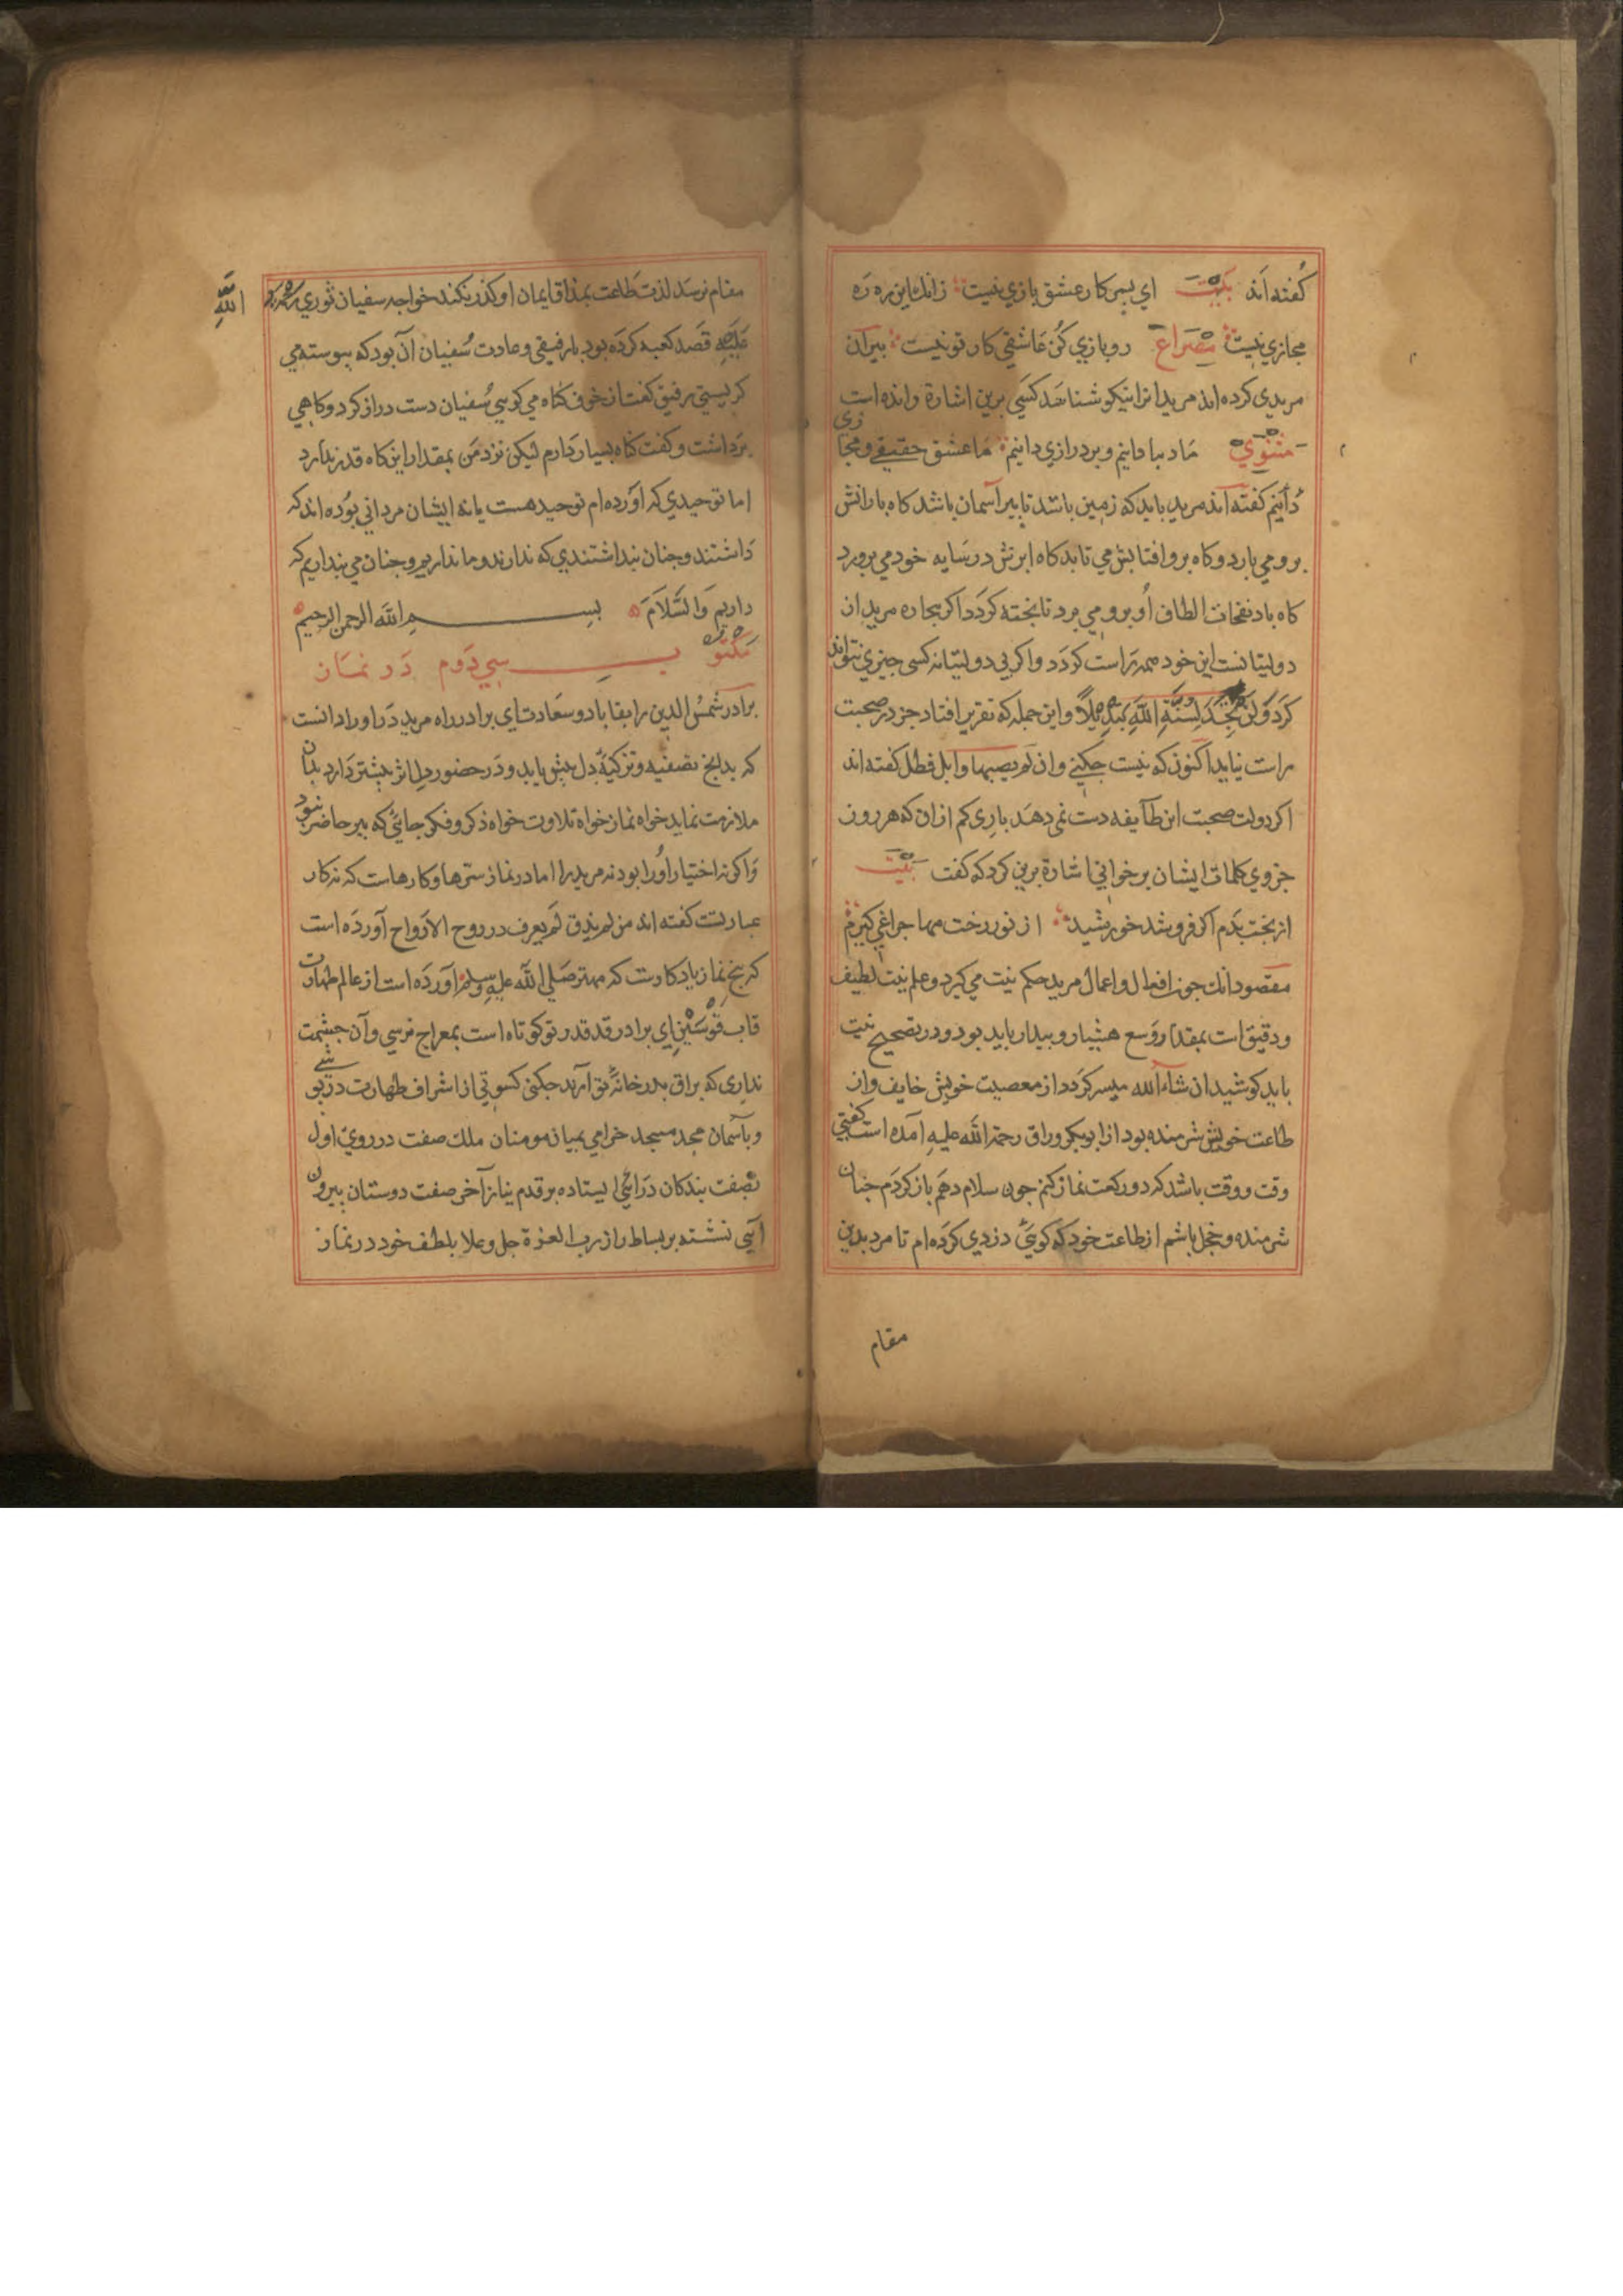 كفته اند بيت اي پسر كار عشق بازي نيست زانك اين ره ره
مجازي نيست مصراع رو بازي كن عاشقي كار تو نيست پيران
مريدي كرده اند مريدانرا نيكو شناسند كسي برين اشارة رانده است
مثنوي ما دبا دانيم و بردرازي دانيم ما عشق حقيقي و مجازي
دانيم كفته اند مريد بايد كه زمين باشد تا پير آسمان باشد كاه بارانش
برو مي بارد و كاه برو افتابش مي تابد كاه ابرش در سايه خود مي پرورد
كاه باد نفحات الطاف او برو مي برد تا پخته كردد اكر بيجاره مريد از
دولتيانست اين خود همه راست كردد و اكر بي دولتيانه كسي جيزي نتواند
كرد ولن تجد لسنة الله تبديلا و اين جمله كه تقرير افتاد جز در صحبت
راست نيايد اكنون كه نيست جكني و ان لم يصبها وابل فطل كفته اند
اكر دولت صحبت اين طايفه دست نمي دهد باري كم از ان كه هر روز
جزوي كلمات ايشان بر خواني اشارة برين كرد كه كفت بيت
از بخت بدم اكر فرو شد خورشيد از نور رخت مها جراغي كيرم
مقصود انك جون افعال و اعمال مريد حكم نيت مي كيرد و علم نيت لطيف
و دقيق است بمقدار وسع هشيار و بيدار بايد بود و در تصحيح نيت
بايد كوشيد ان شاء الله ميسر كردد از معصيت خويش خايف و از
طاعت خويش شرمنده بود از ابوبكر وراق رحمة الله عليه آمده است كفتي
وقت و وقت باشد كه دو ركعت نماز كنم جون سلام دهم باز كردم جنان
شرمنده و خجل باشم از طاعت خود كه كويي دزدي كرده ام تا مرد بدين
مقام
مقام نرسد لذت طاعت بمذاق ايمان او كذر نكند خواجه سفيان ثوري رحمة الله
عليه قصد كعبه كرده بود با رفيقي و عادت سفيان آن بود كه پيوسته مي
كريستي رفيق كفت از خوف كناه مي كريي سفيان دست دراز كرد و كاهي
برداشت و كفت كناه بسيار دارم ليكن نزد من بمقدار اين كاه قدر ندارد
اما توحيدي كه آورده ام توحيد هست يا نه ايشان مرداني بوده اند كه
داشتند و جنان پنداشتندي كه ندارند و ما نداريم و جنان مي پنداريم كه
داريم والسلام بسم الله الرحمن الرحيم
مكتوب سي دوم در نماز
برادر شمس الدين را بقا باد و سعادت اي برادر راه مريد در اوراد انست
كه بدانج تصفيه و تزكيه دل بيش يابد و در حضور دل اثر بيشتر دارد بدان
ملازمت نمايد خواه نماز خواه تلاوت خواه ذكر و فكر جايي كه پير حاضر نبود
و اكر نه اختيار او را بود نه مريد را اما در نماز سترها و كارهاست كه نه كار
عبارتست كفته اند من لم يذق لم يعرف در روح الارواح آورده است
كه پنج نماز يادكارست كه مهتر صلي الله عليه وسلم آورده است از عالم طهارت
قاب قوسين اي برادر قد قدر تو كوتاه است بمعراج نرسي و آن حشمت
نداري كه براق بدر خانه تو آرند جكني كسوتي از اشراف طهارت در پوشي
و بآسمان مجد مسجد خرامي بميان مومنان ملك صفت در روي اول
بصفت بندكان در آئي ايستاده بر قدم نياز آخر صفت دوستان بيرون
آيي نشسته بر بساط راز رب العزة جل و علا بلطف خود در نماز